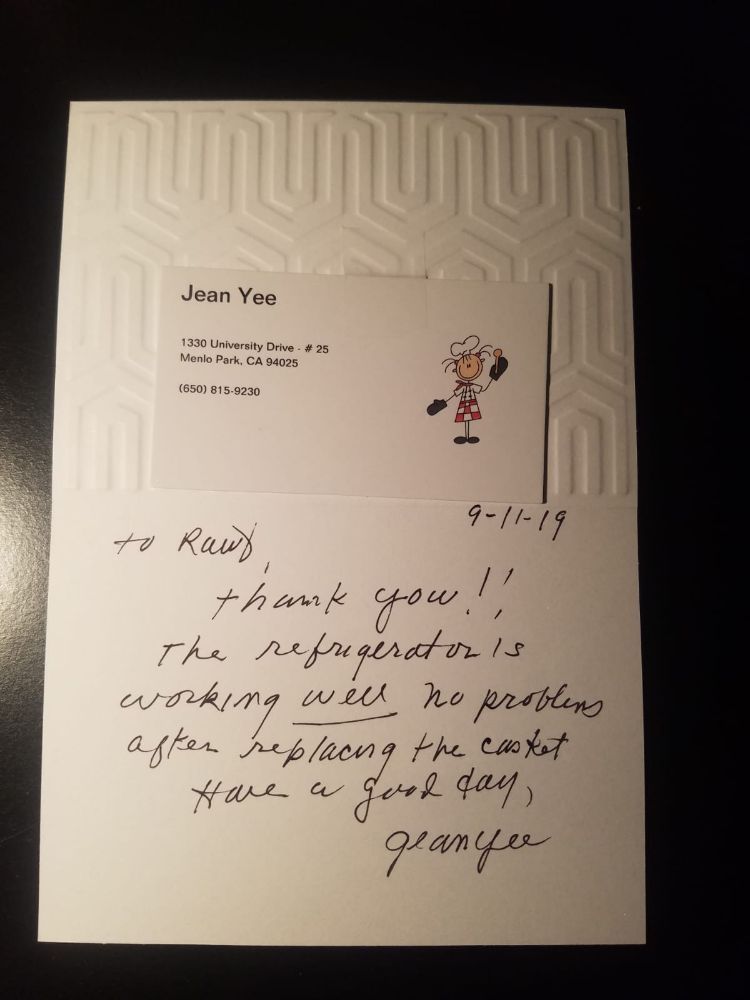 Jean Yee
1330 University Drive - # 25
Menlo Park, CA 94025
(650) 815-9230
9-11-19
to
thank you!!
The refrigerator is
working well no problems
after replacing the casket
Have a good day,
Jean Yee